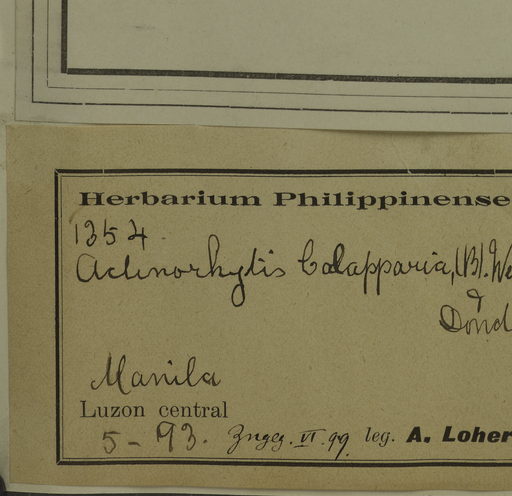 Herbarium Philippinense
1354.
Actinorhytis Calapparia, (Bl). We
&
Dond
Manila
Luzon central
5 - 93. Zngeg. VI. 99. leg. A. Loher